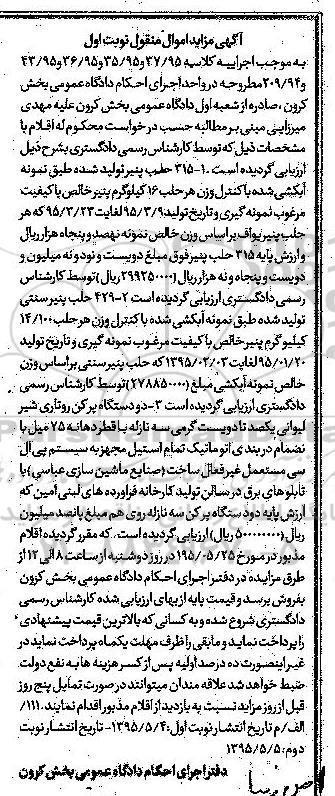 آگهی مزایده اموال منقول نوبت اول
به موجب اجراییه کلاسه ۳۷/۹۵ و ۳۵/۹۵ و ۳۶/۹۵ و ۴۳/۹۵
و ۲۰۹/۹۴ مطروحه در واحد اجرای احکام دادگاه عمومی بخش
کرون، صادره از شعبه اول دادگاه عمومی بخش کرون علیه مهدی
میرزاینی مبنی بر مطالبه حسب درخواست محکوم له اقلام با
مشخصات ذیل که توسط کارشناس رسمی دادگستری بشرح ذیل
ارزیابی گردیده است. ۱-۳۱۵ حلب پنیر تولید شده طبق نمونه
آبکشی شده با کنترل وزن هر حلب ۱۶ کیلوگرم پنیر خالص با کیفیت
مرغوب نمونه گیری و تاریخ تولید ۹۵/۳/۹ لغایت ۹۵/۳/۲۳ که هر
حلب پنیر یواف بر اساس وزن خالص نمونه نهصد و پنجاه هزار ریال
و ارزش پایه ۳۱۵ حلب پنیر فوق مبلغ دویست و نود و نه میلیون و
دویست و پنجاه و نه هزار ریال (۲۹۹۲۵۰۰۰۰ ریال) توسط کارشناس
رسمی دادگستری ارزیابی گردیده است ۲-۴۲۹ حلب پنیر سنتی
تولید شده طبق نمونه آبکشی شده با کنترل وزن هر حلب ۱۴/۱۰۰
کیلیوگرم پنیر خالص با کیفیت مرغوب نمونه گیری و تاریخ تولید
۹۵/۰۱/۲۰ لغایت ۱۳۹۵/۰۲/۰۳ که حلب پنیر سنتی بر اساس وزن
خالص نمونه آبکشی مبلغ (۲۷۸۸۵۰۰۰۰) توسط کارشناس رسمی
دادگستری ارزیابی گردیده است ۳-دو دستگاه پرکن روتاری شیر
لیوانی یکصد تا دویست گرمی سه نازله با قطر دهانه ۷۵ میل با
نضمام دربندی اتوماتیک تمام استیل مجهز به سیستم پی ال
سی مستعمل غیر فعال ساخت (صنایع ماشین سازی عباسی) با
تابلوهای برق در سالن تولید کارخانه فراورده های لبنی آمین که
ارزش پایه دو دستگاه پرکن سه نازله روی هم مبلغ پانصد میلیون
ریال (۵۰۰۰۰۰۰۰۰ ریال) ارزیابی گردیده است. که مقرر گردیده اقلام
مذبور در مورخ ۹۵/۰۵/۲۵ در روز دوشنبه از ساعت ۸ الی ۱۲ از
طرق مزایده در دفتر اجرای احکام دادگاه عمومی بخش کرون
بفروش برسد و قیمت پایه از بهای ارزیابی شده کارشناس رسمی
دادگستری شروع شده و به کسانی که بالاترین قیمت پیشنهادی
را پرداخت نماید و مابقی را ظرف مهلت یکماه پرداخت نماید در
غیر اینصورت ده درصد اولیه پس از کسر هزینه ها به نفع دولت
ضبط خواهد شد علاقه مندان میتوانند در صورت تمایل پنج روز
قبل از روز مزاید نسبت به بازدید از اقلام مذبور اقدام نمایند. /۱۱۱
الف/م تاریخ انتشار نوبت اول: ۱۳۹۵/۵/۴- تاریخ انتشار نوبت
دوم: ۱۳۹۵/۵/۵
دفتر اجرای احکام دادگاه عمومی بخش کرون